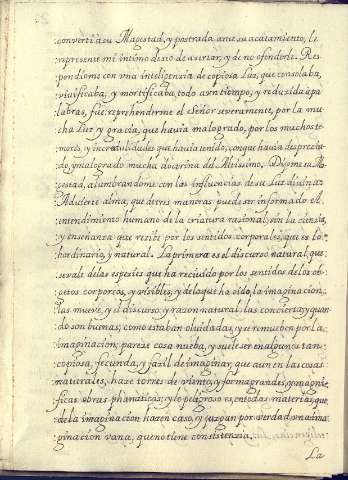 convertí a su Magestad, y postrada ante su acatamiento, le
representé mi íntimo deseo de acertar, y de no ofenderle. Res-
pondiome con vna inteligenzia de copiosa Luz, que consolaba,
viuificaba, y mortificaba, todo a vn tiempo, y reduzida a pa
labras, fue: reprehenderme el Señor seueramente, por la mu
cha Luz y gracia, que hauia malogrado, por los muchos te-
mores, y incredulidades que hauia tenido, con que hauia desprecia
do, y malogrado mucha doctrina del Altissimo. Díxome su Ma
gestad, alumbrandome con las influencias de su Luz diuina:
Aduierte alma, que de tres maneras puede ser informado el
entendimiento humano de la criatura razional, con la cienzia,
y enseñanza que reciue por los sentidos corporales, que es lo
hordinario, y natural. La primera es el discurso natural, que
se vale de las espezies que ha reciuido por los sentidos de los ob-
gectos corporeos, y visibles, y de lo que ha oido, la imaginazion
las mueve, y el discurso, y razon natural las concierta; y quan
do son buenas, como estaban oluidadas, y se remueben por la
imaginazion, pareze cosa nueba, y suele ser en algunos tan
copiosa, fecunda, y fazil de imaginar, que aun en las cosas
naturales, haze torres de viento, y forma grandes, y magni-
ficas obras phantasticas; y lo peligroso es, en todas materias, que
de la imaginazion hazen caso, y juzgan por verdad, vna ima
ginazion vana, que no tiene consistenzia.
La